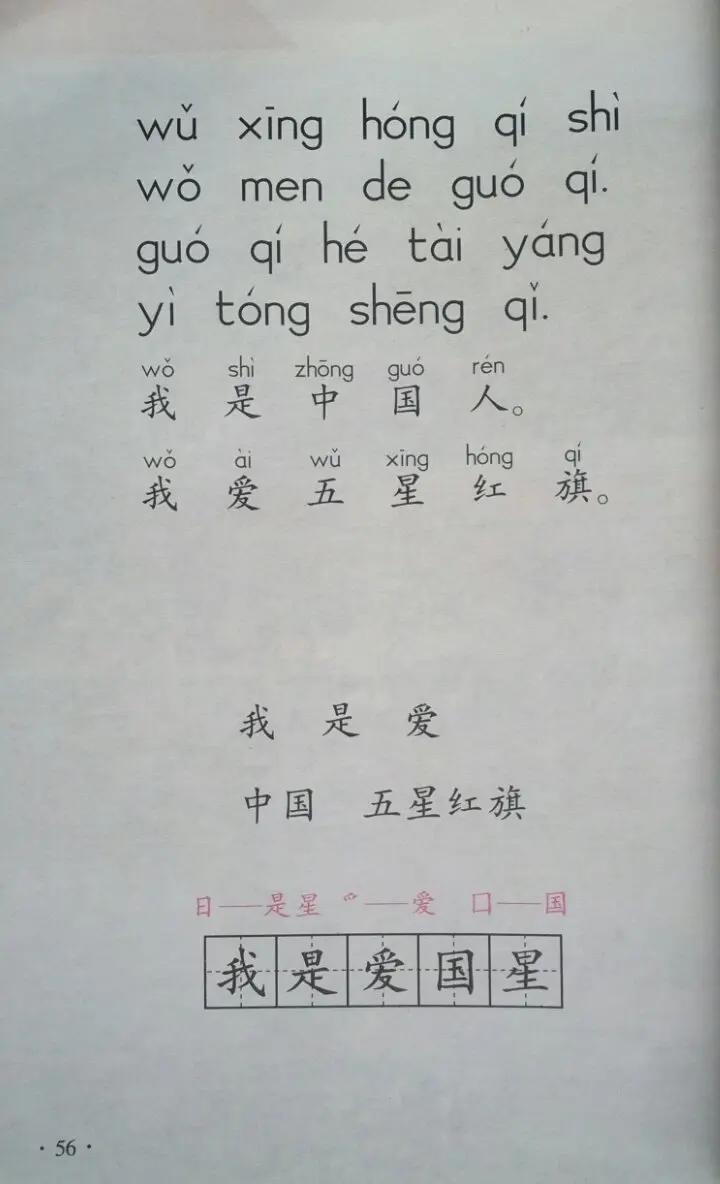 wǔ xīng hóng qí shì
wǒ men de guó qí.
guó qí hé tài yáng
yì tóng shēng qǐ.
wǒ shì zhōng guó rén
我 是 中 国 人。
wǒ ài wǔ xīng hóng qí
我 爱 五 星 红 旗。
我 是 爱
中国 五星红旗
日——是星 爫——爱 囗——国
我是爱国星
·56·